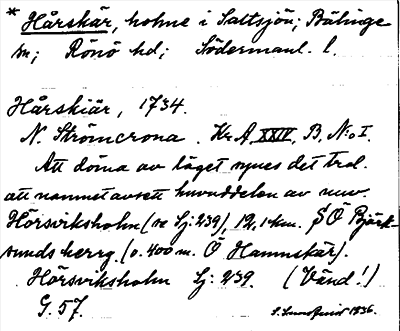 * Hårskär, holme i Saltsjön; Bälinge
sn; Rönö hd; Södermanl. l.
Hårskiär, 1734.
N. Strömcrona. Kr A, XXIV, B, N:o I.
Att döma av läget synes det trol.
att namnet avsett huvuddelen av nuv.
Hörsviksholm (se Sj: 239), 12,1 km. SÖ Björk-
sunds herrg. (o. 400 m. Ö Hamnskär).
Hörsviksholm Sj: 239. (Vänd!)
G. 57. S. Lundqvist 1936.